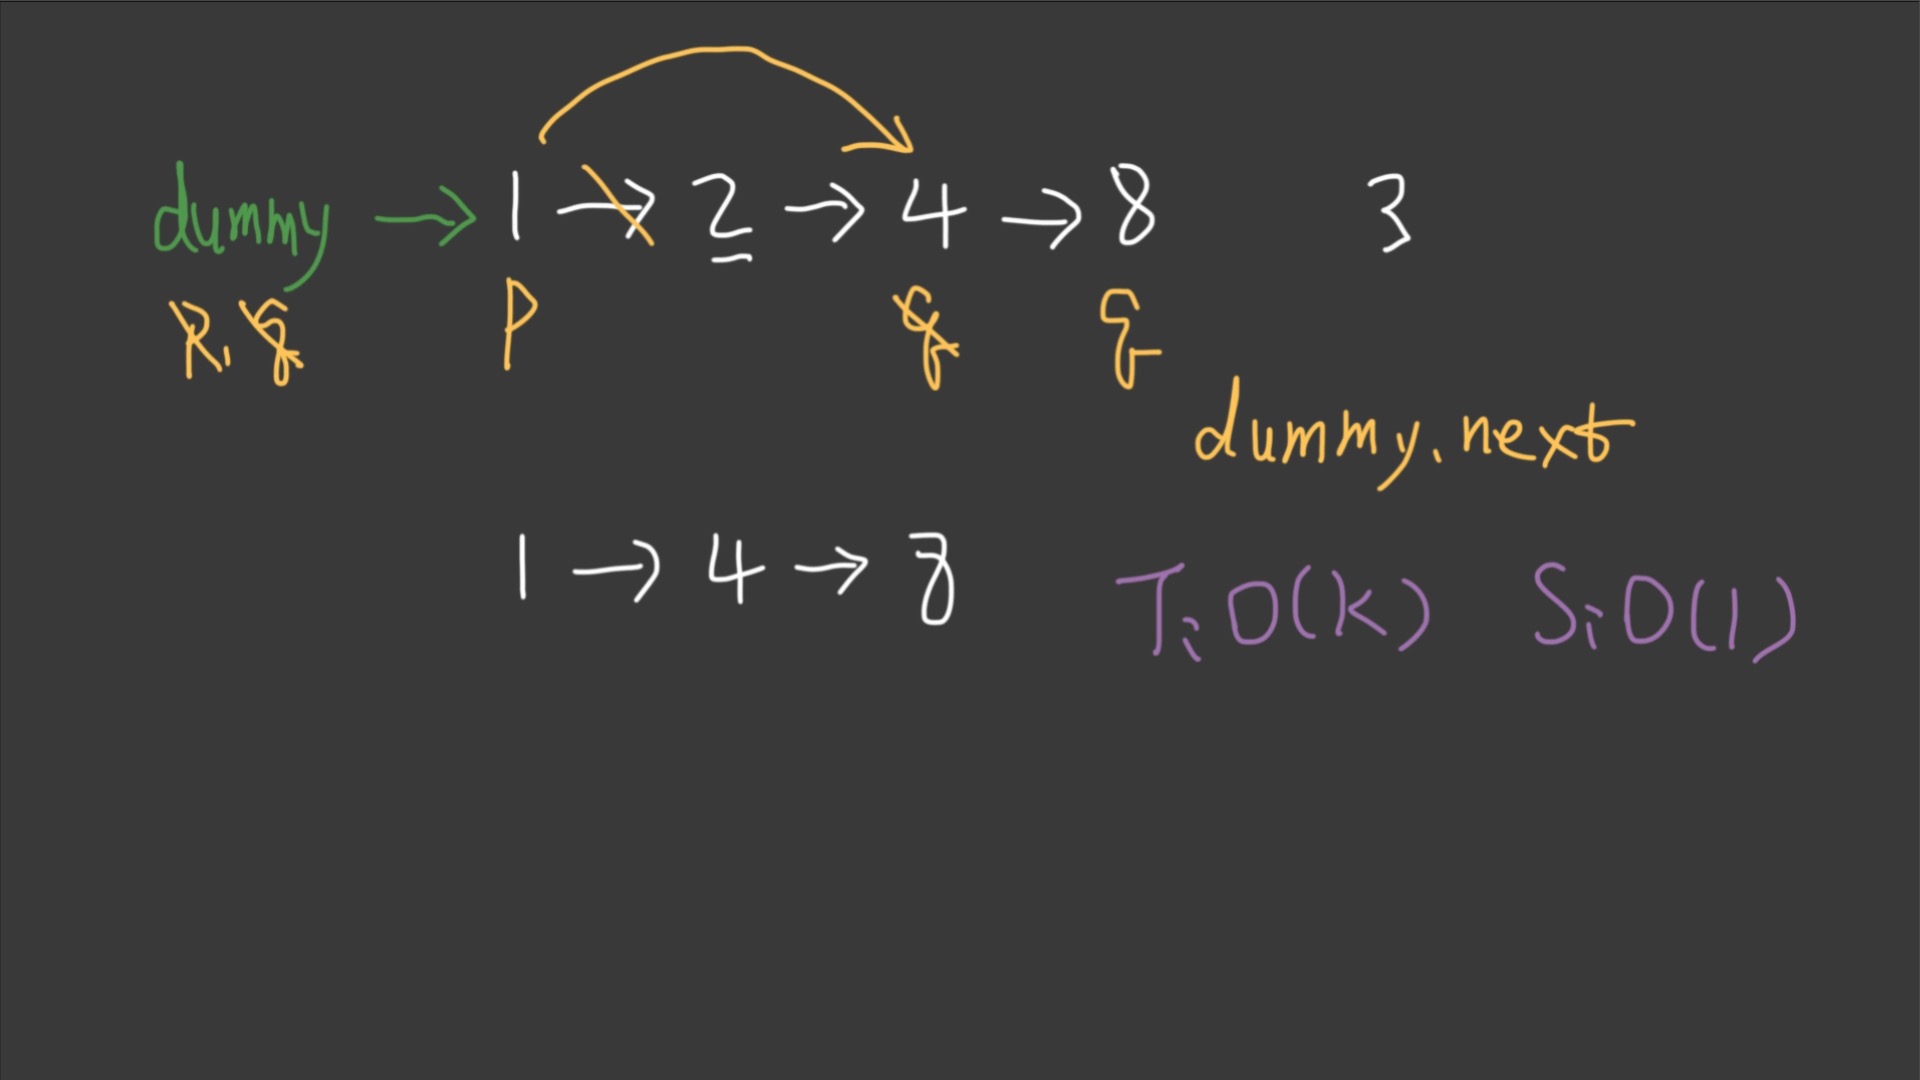 dummy → 1 → 2 → 4 → 8 3
p, q p q q
dummy.next
1 → 4 → 8
T: O(k) S: O(1)